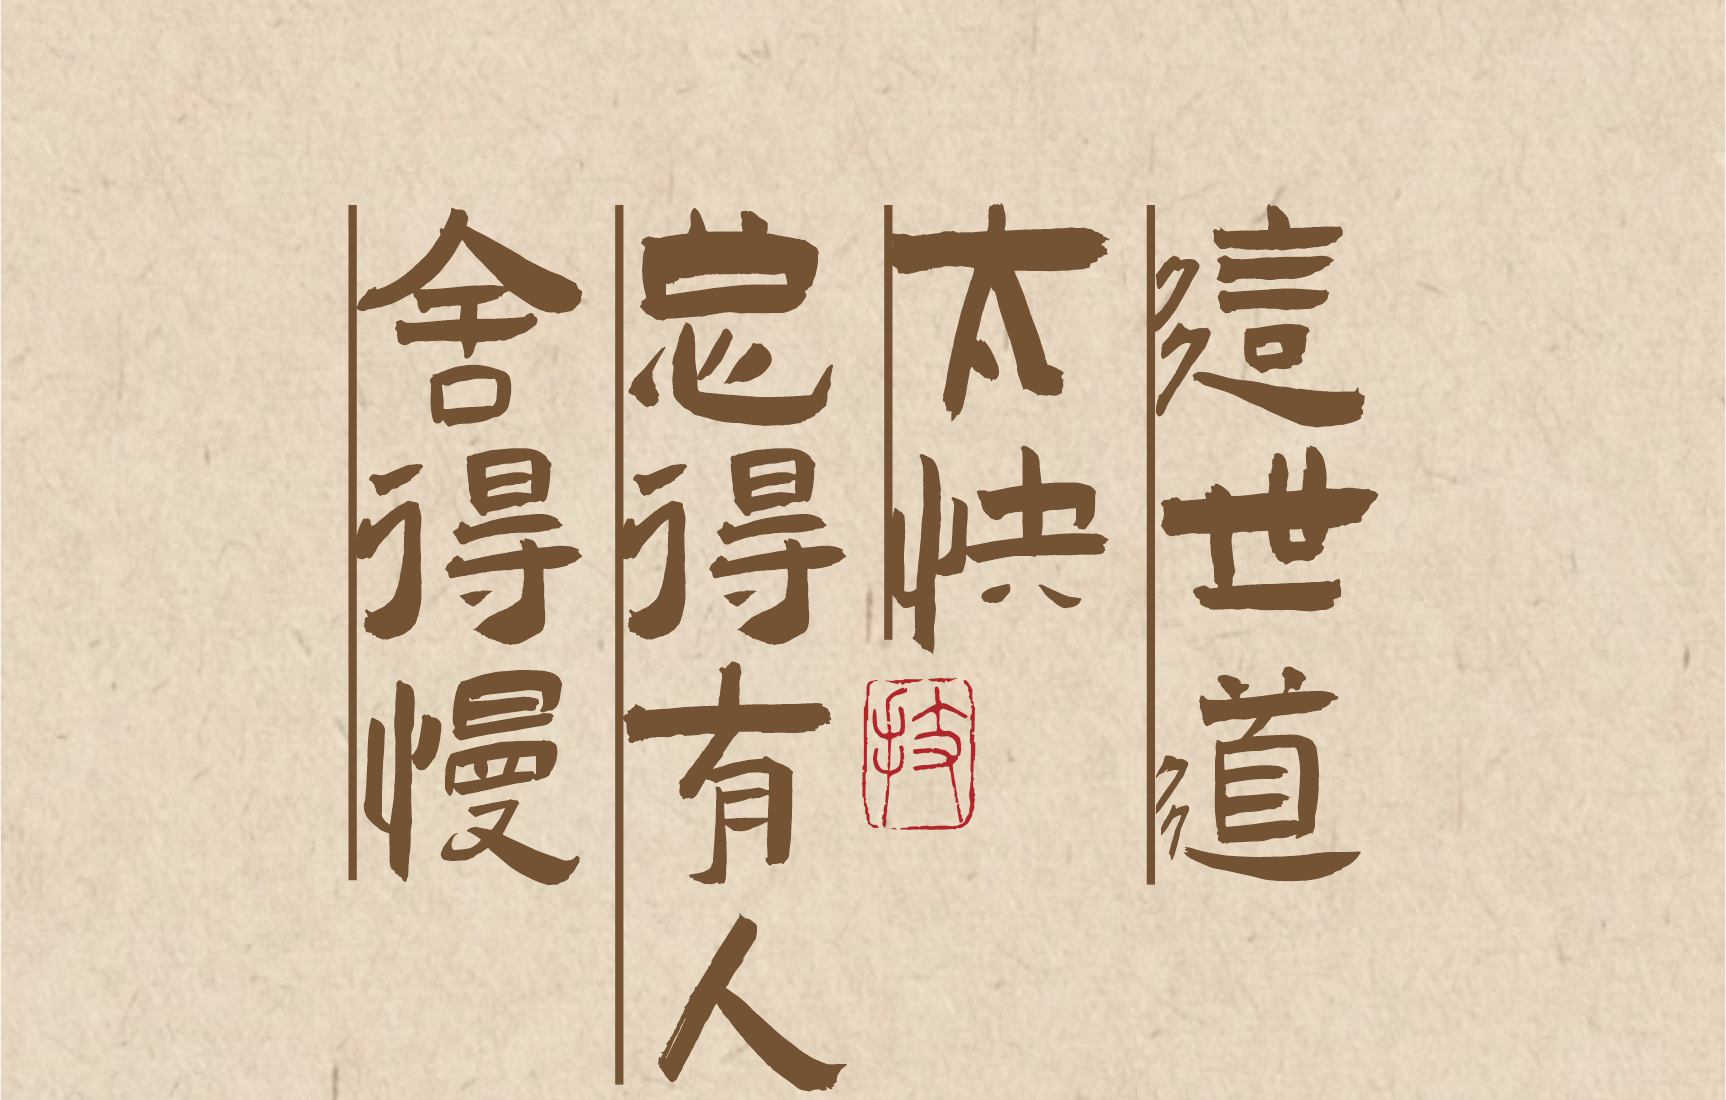 這世道
太快
技
总得有人
舍得慢